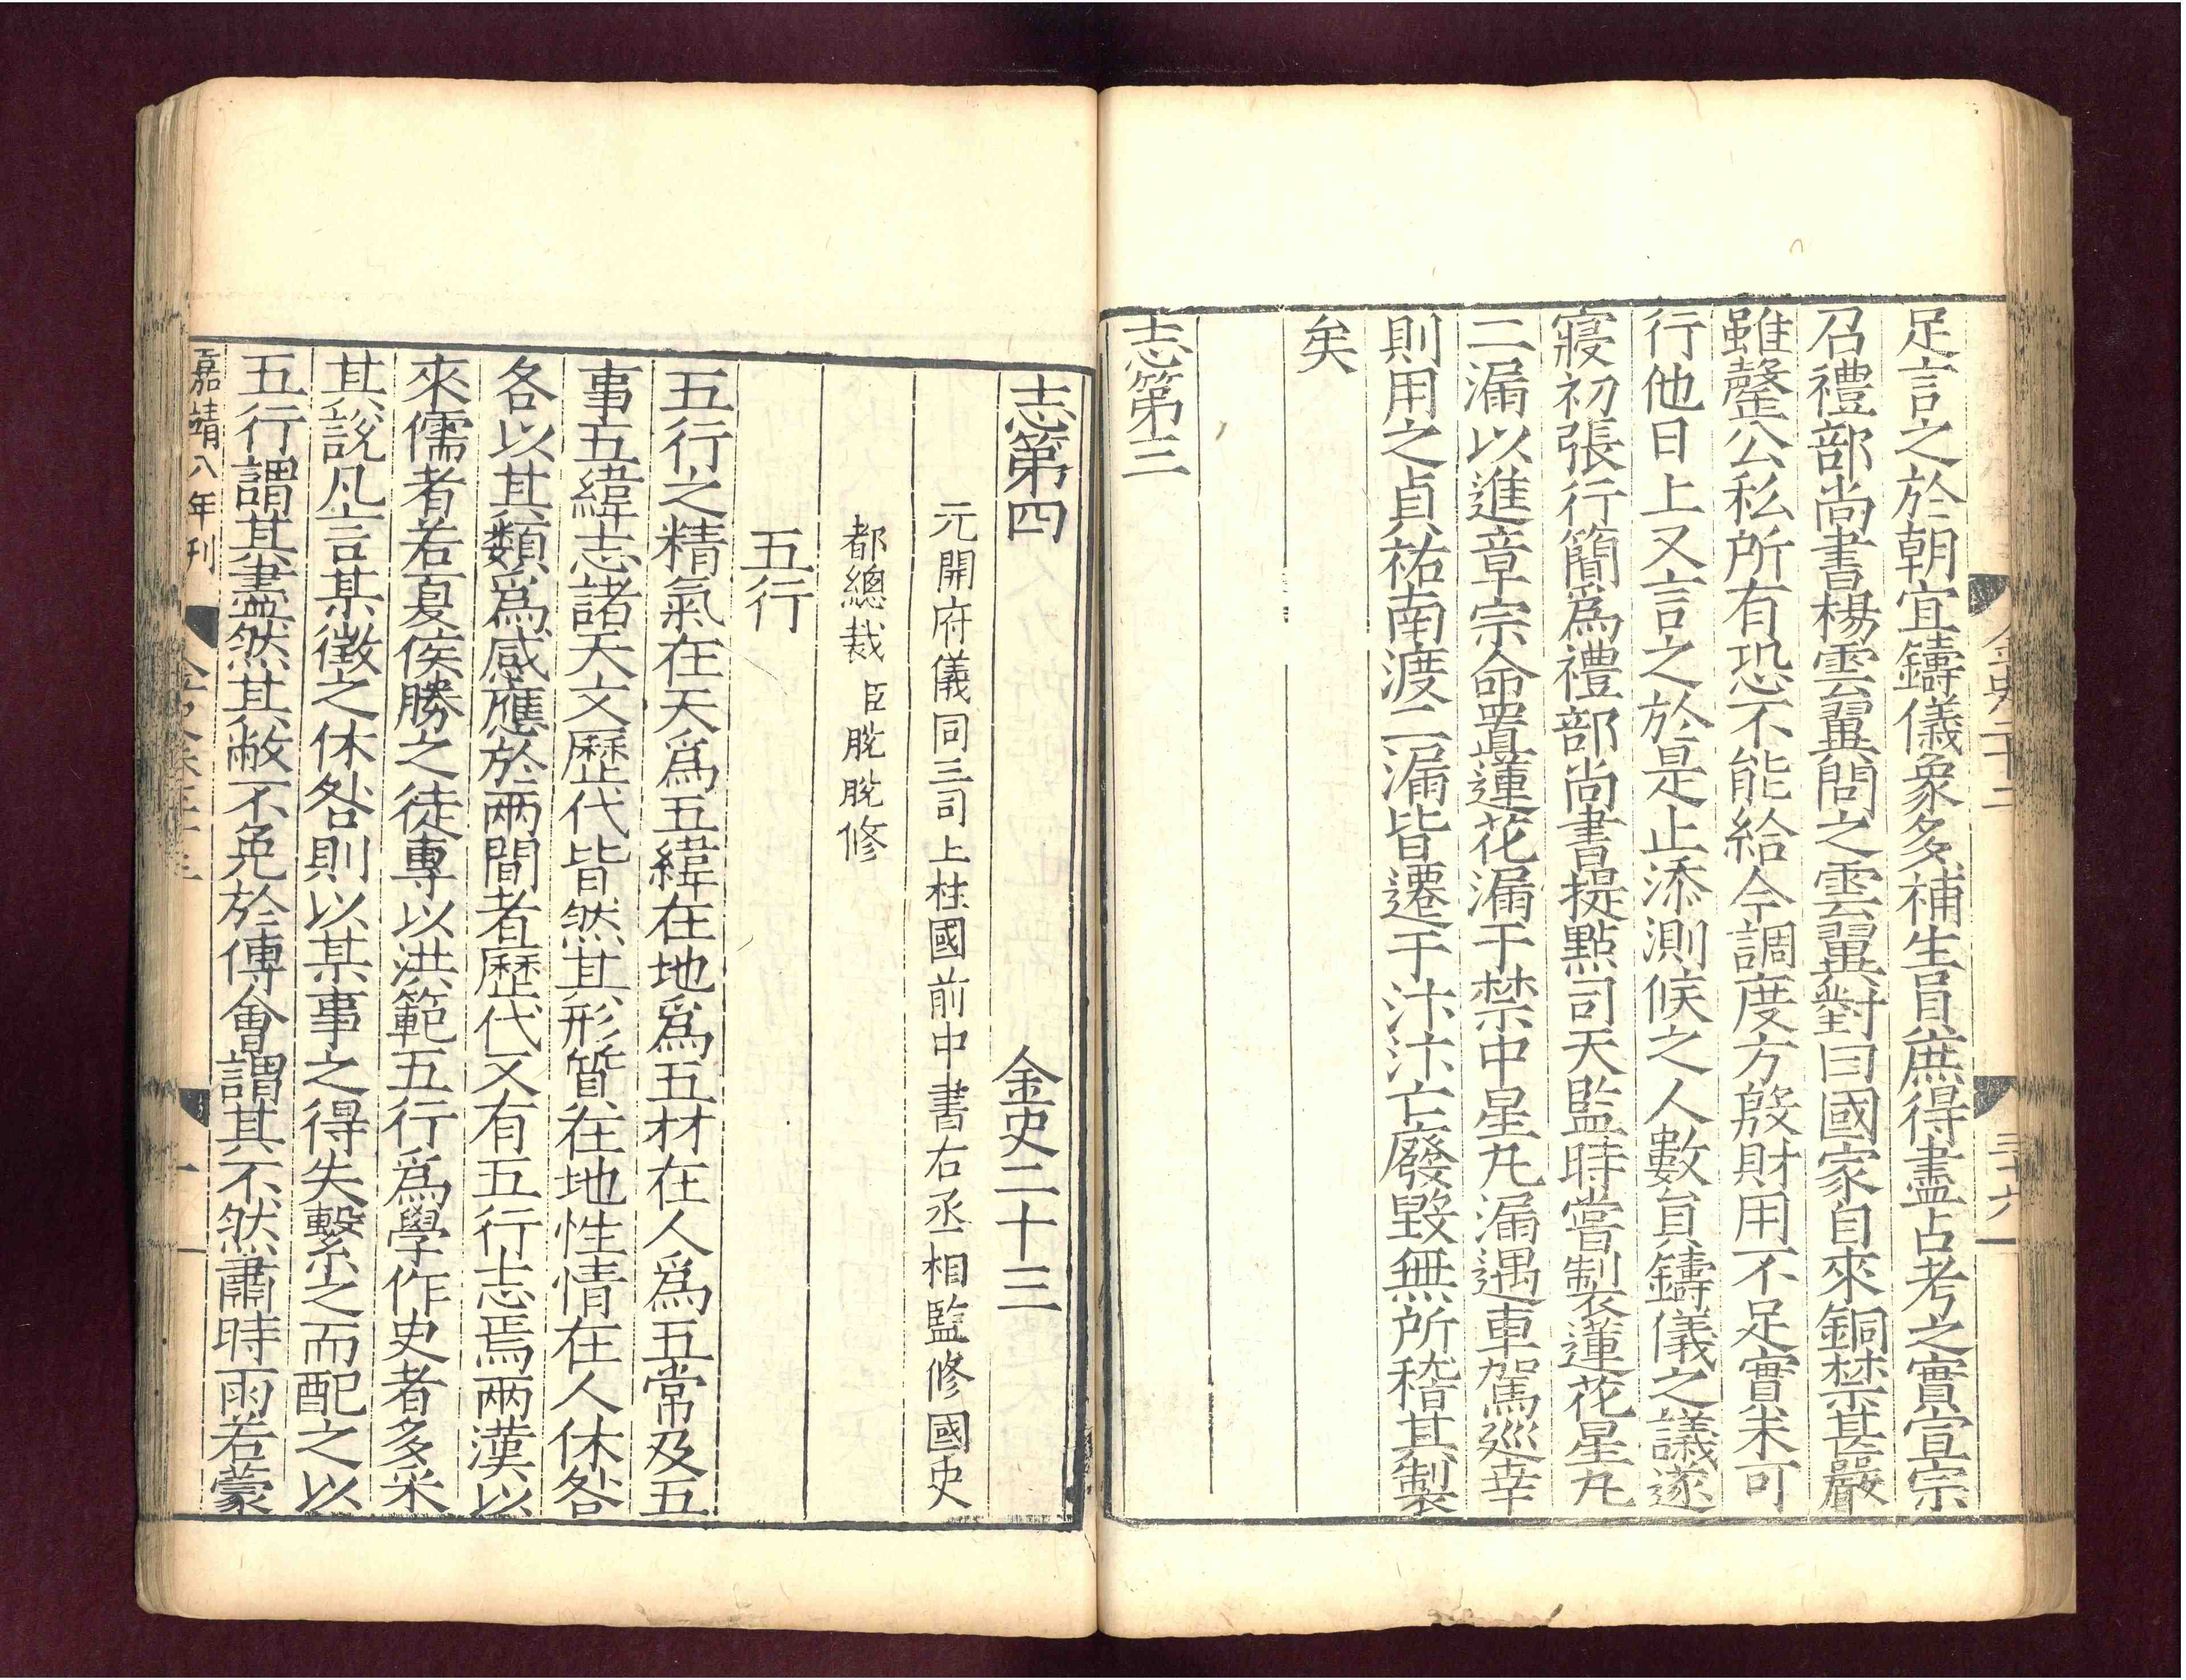 足言之於朝宜鑄儀象多補生員庶得盡占考之實宣宗
召禮部尚書楊雲翼問之雲翼對曰國家自來銅禁甚嚴
雖罄公私所有恐不能給今調度方殷財用不足實未可
行他日上又言之於是止添測候之人數員鑄儀之議遂
寢初張行簡爲禮部尚書提點司天監時嘗製蓮花星丸
二漏以進章宗命置蓮花漏于禁中星丸漏遇車駕巡幸
則用之貞祐南渡二漏皆遷于汴汴亡廢毀無所稽其製
矣
志第三
金史二十二
三十六
志第四 金史二十三
元開府儀同三司上柱國前中書右丞相監修國史
都總裁臣脫脫修
五行
五行之精氣在天爲五緯在地爲五材在人爲五常及五
事五緯志諸天文歷代皆然其形質在地性情在人休咎
各以其類爲感應於兩間者歷代又有五行志焉兩漢以
來儒者若夏侯勝之徒專以洪範五行爲學作史者多采
其說凡言某徵之休咎則以某事之得失繫之而配之以
五行謂其盡然其敝不免於傅會謂其不然肅時雨若蒙
嘉靖八年刊
金史卷二十三
一